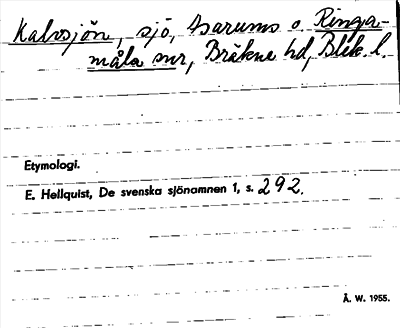 Kalvsjön, sjö, Asarums o. Ringa-
måla snr, Bräkne hd, Blek. l.
Etymologi.
E. Hellquist, De svenska sjönamnen 1, s. 292.
Å. W. 1955.